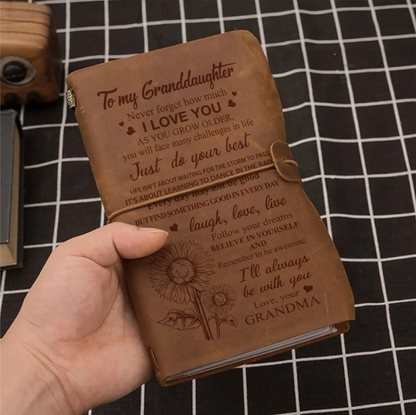 To my Granddaughter
Never forget how much
I LOVE YOU
AS YOU GROW OLDER,
you will face many challenges in life
Just do your best
LIFE ISN'T ABOUT WAITING FOR THE STORM TO PASS
IT'S ABOUT LEARNING TO DANCE IN THE RAIN
Every day may not be good
BUT FIND SOMETHING GOOD IN EVERYDAY
laugh, love, live
Follow your dreams
BELIEVE IN YOURSELF
AND
Remember to be awesome
I'll always
be with you
Love, your
GRANDMA